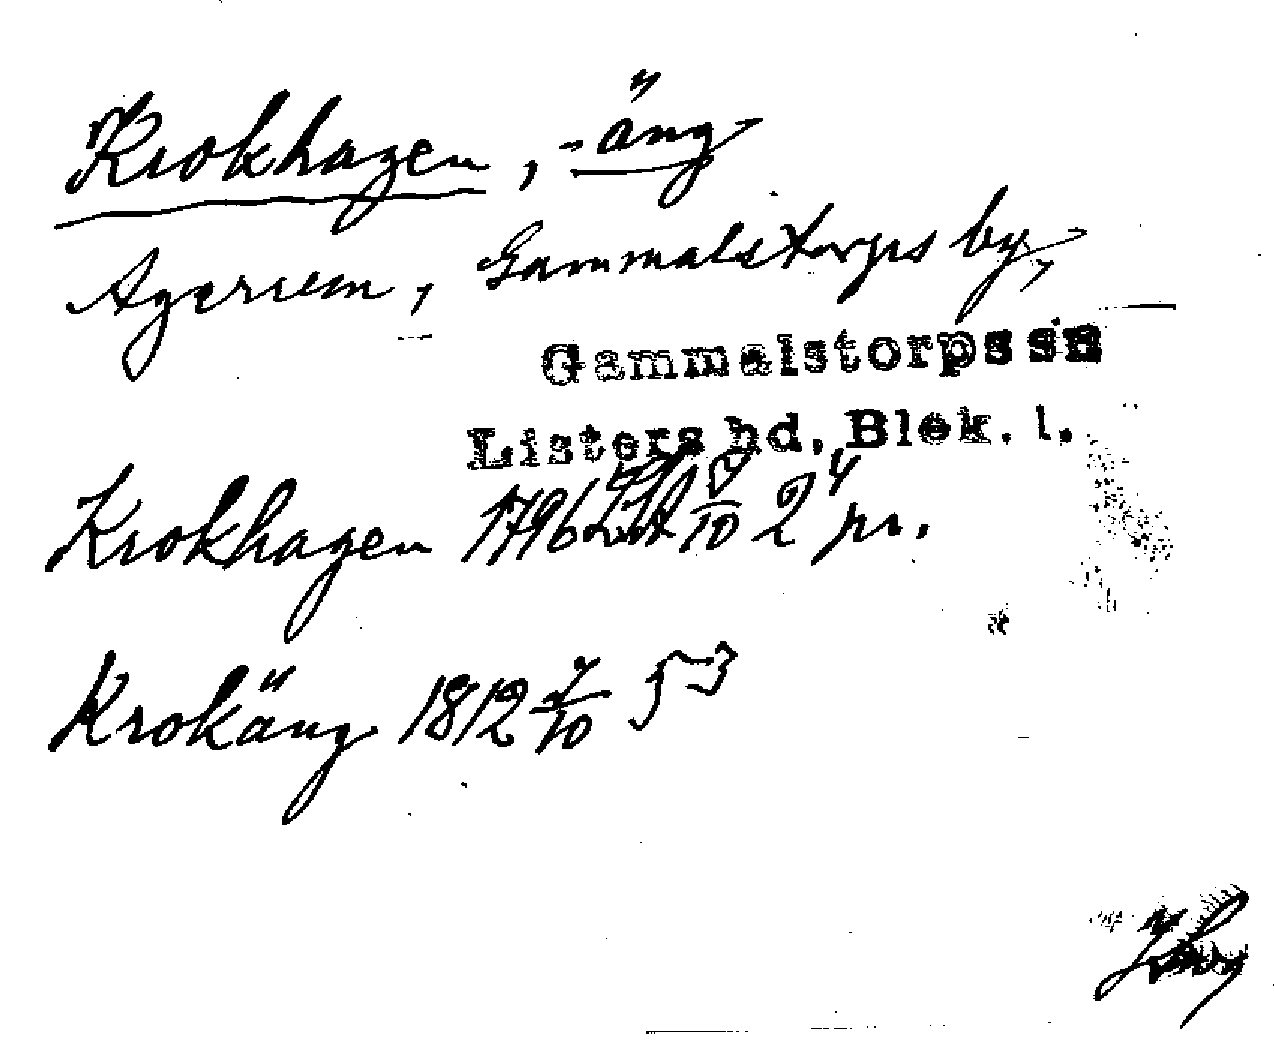 Krokhagen, -äng
Ägoriem, Gammalstorps by,
Gammalstorps sn
Listers hd, Blek. l.
Krokhagen 1796 10 2 pr.
Krokäng 1812 7/10 53